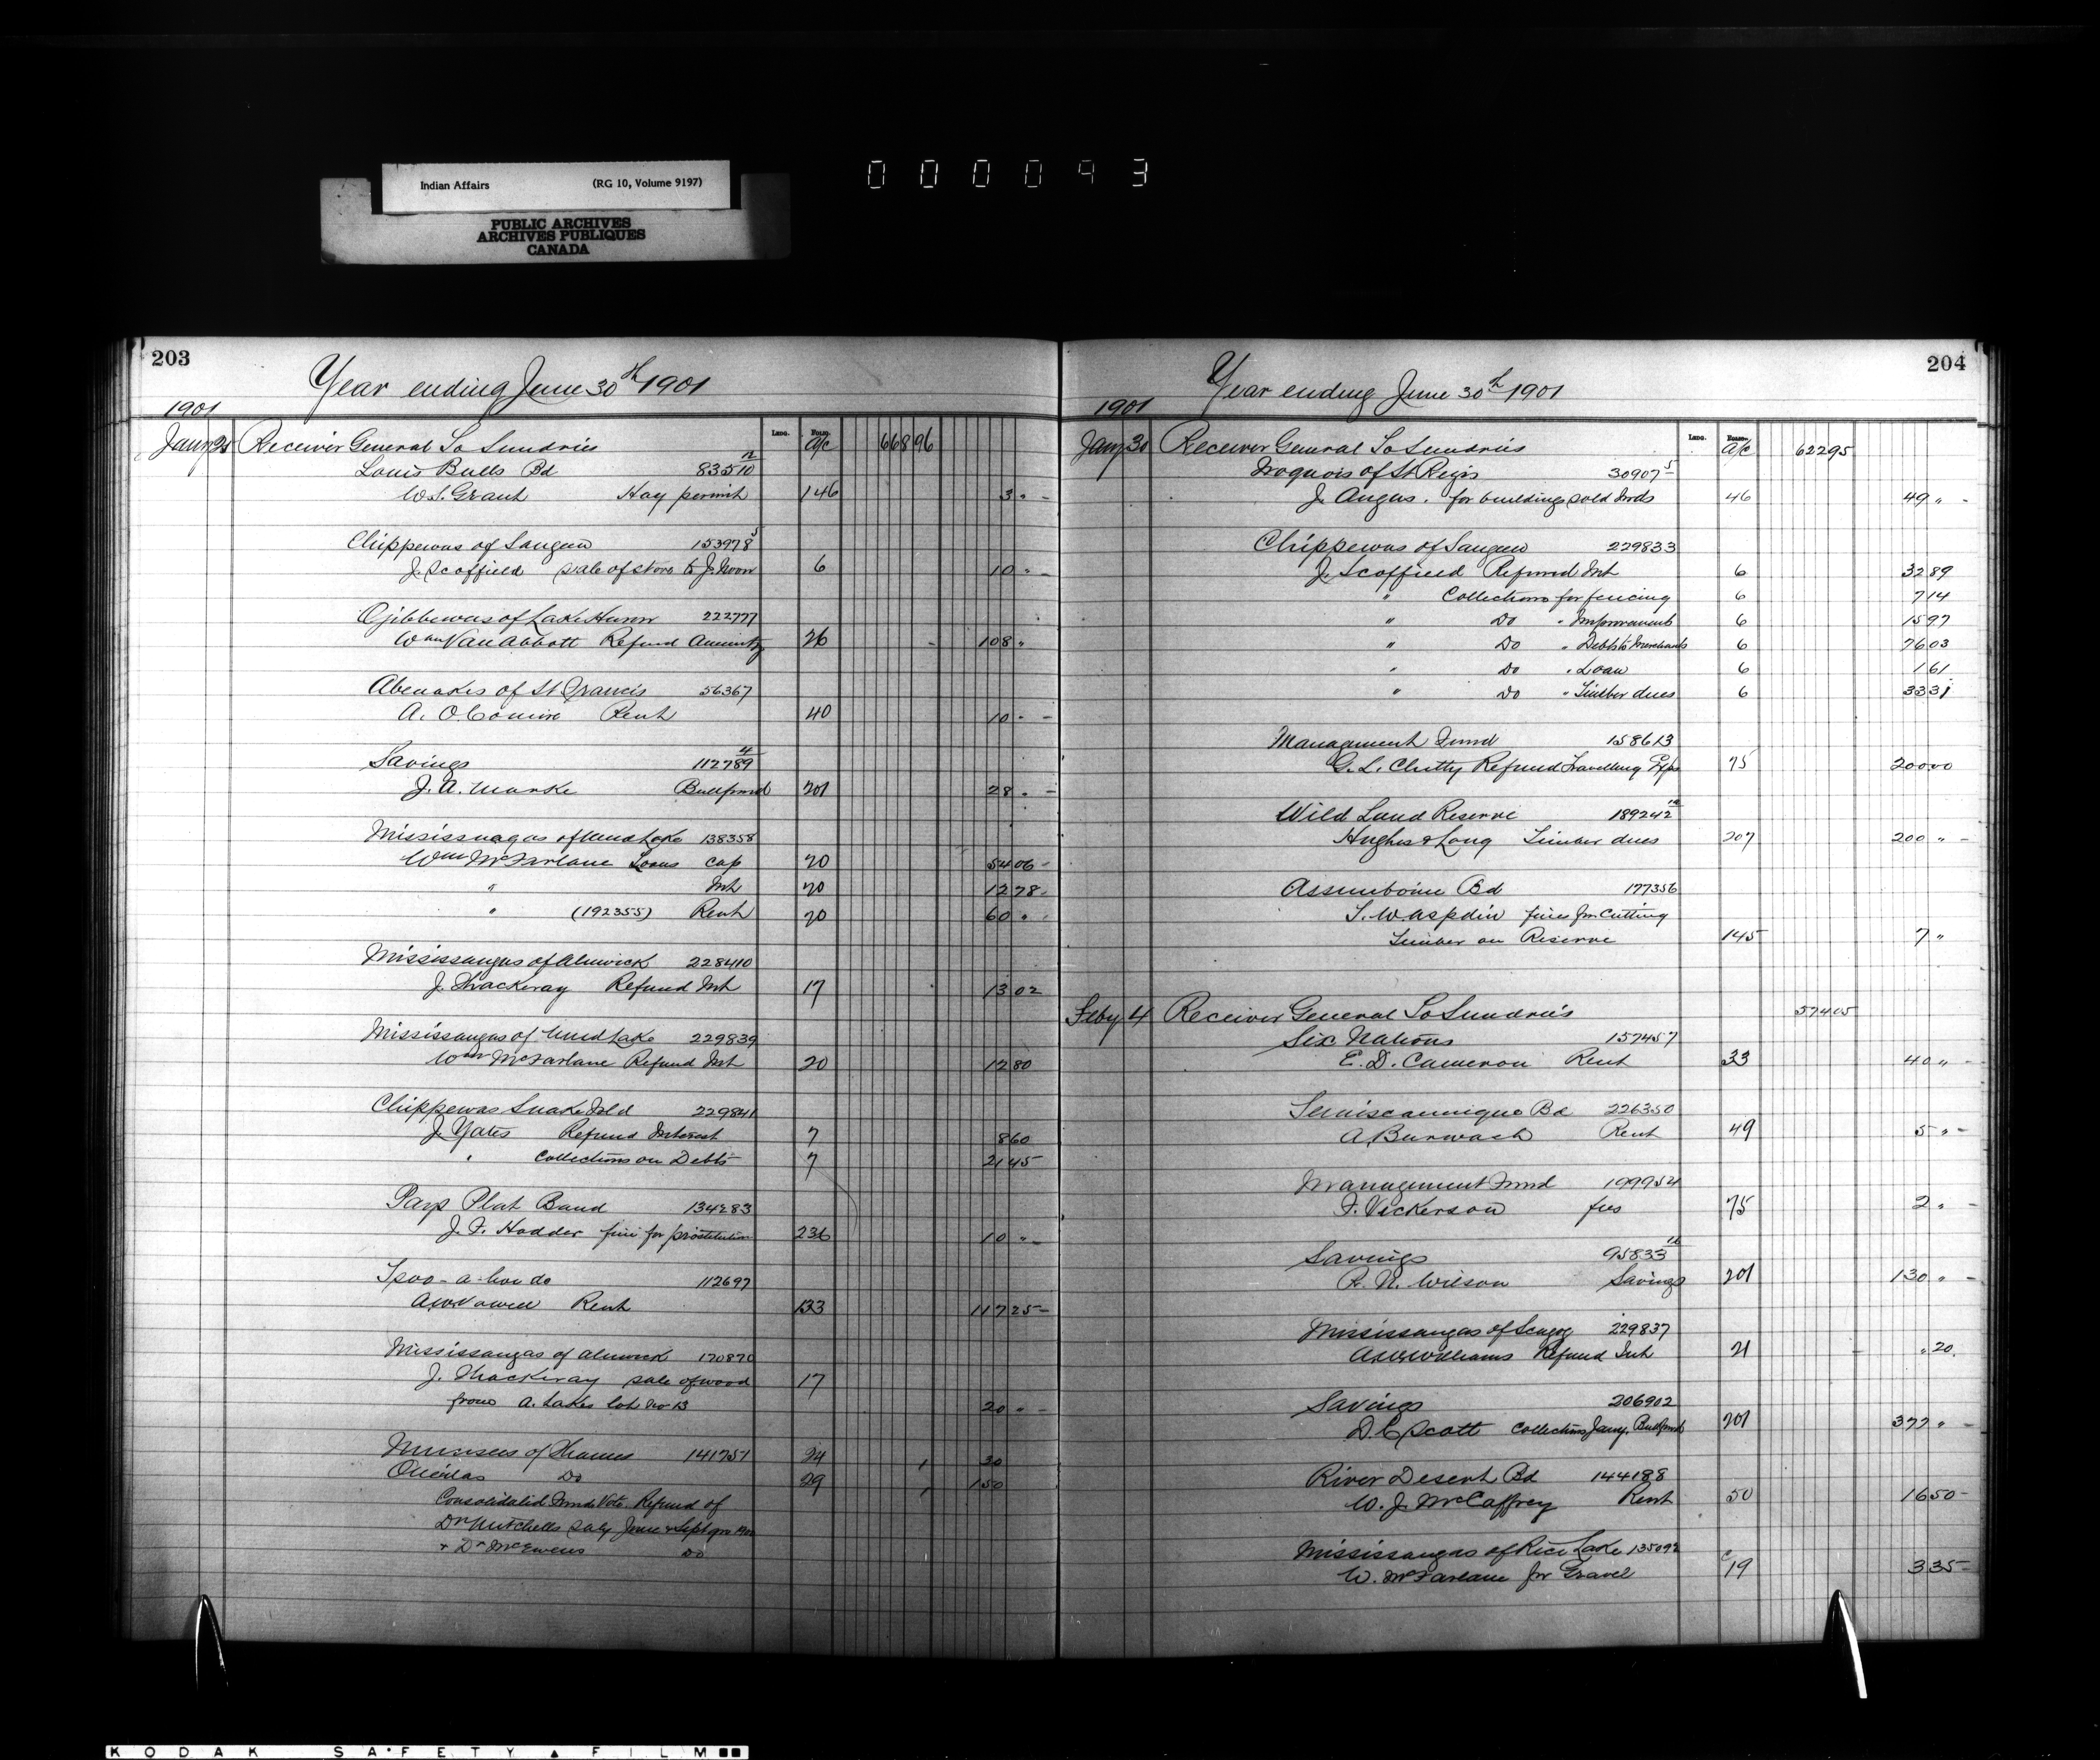 Indian Affairs (RG 10, Volume 9197)
PUBLIC ARCHIVES
ARCHIVES PUBLIQUES
CANADA
000093
203
Year ending June 30th 1901
1901
Ledg. Folio.
Jany 25 Receiver General To Sundries a/c 668 96
Louis Bulls Bd 83510 12
W.S. Grant Hay permit 146 3 " -
Chippewas of Saugeen 153978 5
J. Scoffield sale of store to J. Noon 6 10 " -
Ojibbewas of Lake Huron 222777
Wm Van Abbott Refund Annuity 26 108 "
Abenakis of St Francis 56367
A. O Comire Rent 40 10 " -
Savings 112789 4
J.A. Marke Bullfund 201 28 " -
Mississuagas of Mud Lake 138358
Wm McFarlane Loans Cap 20 54 06 -
" Int 20 12 78 -
" (192355) Rent 20 60 "
Mississaugas of Alnwick 228410
J. Thackeray Refund Int 17 13 02
Mississaugas of Mud Lake 229839
Wm McFarlane Refund Int 20 12 80
Chippewas Snake Isld 229841
J. Yates Refund Interest 7 8 60
" Collections on Debts 7 21 45
Pays Plat Band 134283
J.F. Hodder fine for prostitution 236 10 " -
112697
A.W. Vowell Rent 133 117 25 -
Mississaugas of Alnwick 170870
J. Thackeray sale of wood 17
from A. Lakes lot No 13 20 " -
Munsees of Thames 141751 24 30
Oneidas Do 29 1 50
Consolidated Fund Vote Refund of
Dr Mitchells saly June & Sept qrs 1900
& Dr McEwens Do
204
Year ending June 30th 1901
1901
Ledg. Folio.
Jany 30 Receiver General To Sundries a/c 622 95
Iroquois of St Regis 30907 5
J. Angus. for buildings sold Inds 46 49 " -
Chippewas of Saugeen 229833
J. Scoffield Refund Int 6 32 89
" Collections for fencing 6 7 14
" Do " Improvements 6 15 97
" Do " Debts to Merchants 6 76 03
" Do " Loan 6 1 61
" Do " Timber dues 6 33 31
Management Fund 158613
G.L. Chitty Refund Travelling Exps 75 200 00
Wild Land Reserve 189242 12
Hughes & Long Timber dues 207 200 " -
Assiniboine Bd 177356
T.W. Aspdin fines for Cutting
Timber on Reserve 145 7 "
Feby 4 Receiver General To Sundries 574 05
Six Nations 157457
E.D. Cameron Rent 33 40 " -
Temiscamingue Bd 226350
A. Burwash Rent 49 5 " -
Management Fund 199954
F. Vickerson fees 75 2 " -
Savings 95833
R.N. Wilson Savings 201 130 " -
Mississaugas of Scugog 229837
A.W. Williams Refund Int 21 " 20
Savings 206902
D.C. Scott Collections Jany. Bullfund 201 377 " -
River Desert Bd 144188
W.J. McCaffrey Rent 50 16 50 -
Mississaugas of Rice Lake 135092
W. McFarlane for Gravel 19 3 35 -
KODAK SAFETY FILM